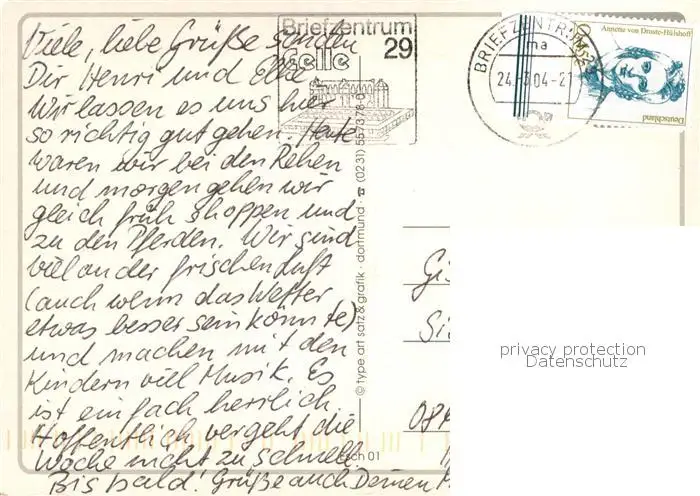 Viele, liebe Grüße senden
Dir Henri und Elke
Wir lassen es uns hier
so richtig gut gehen. Heute
waren wir bei den Rehen
und morgen gehen wir
gleich früh shoppen und
zu den Pferden. Wir sind
viel an der frischen Luft
(auch wenn das Wetter
etwas besser sein könnte)
und machen mit den
Kindern viel Musik. Es
ist einfach herrlich.
Hoffentlich vergeht die
Woche nicht zu schnell.
Bis bald! Grüße auch Deinen
Briefzentrum
29
Celle
BRIEFZENTRUM
ma
24.
04-21
Annette von Droste-Hülshoff
Deutschland
© type art satz & grafik · dortmund · ☎ (0231) 557378-0
Esch 01
Gi
Si
084
privacy protection
Datenschutz